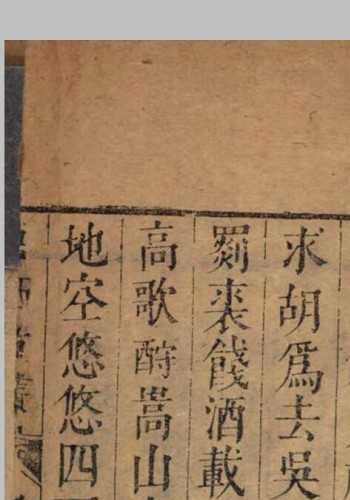 求胡爲去吳
裘餞酒載
高歌酹嵩山
地空悠悠四